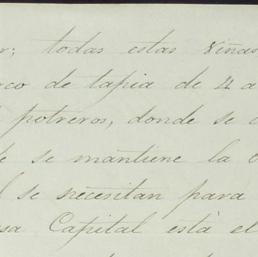 r; todas estas viñas
rco de tapia de 4 a
potreros, donde se c
e se mantiene la
l se necesitan para
sa Capital está el